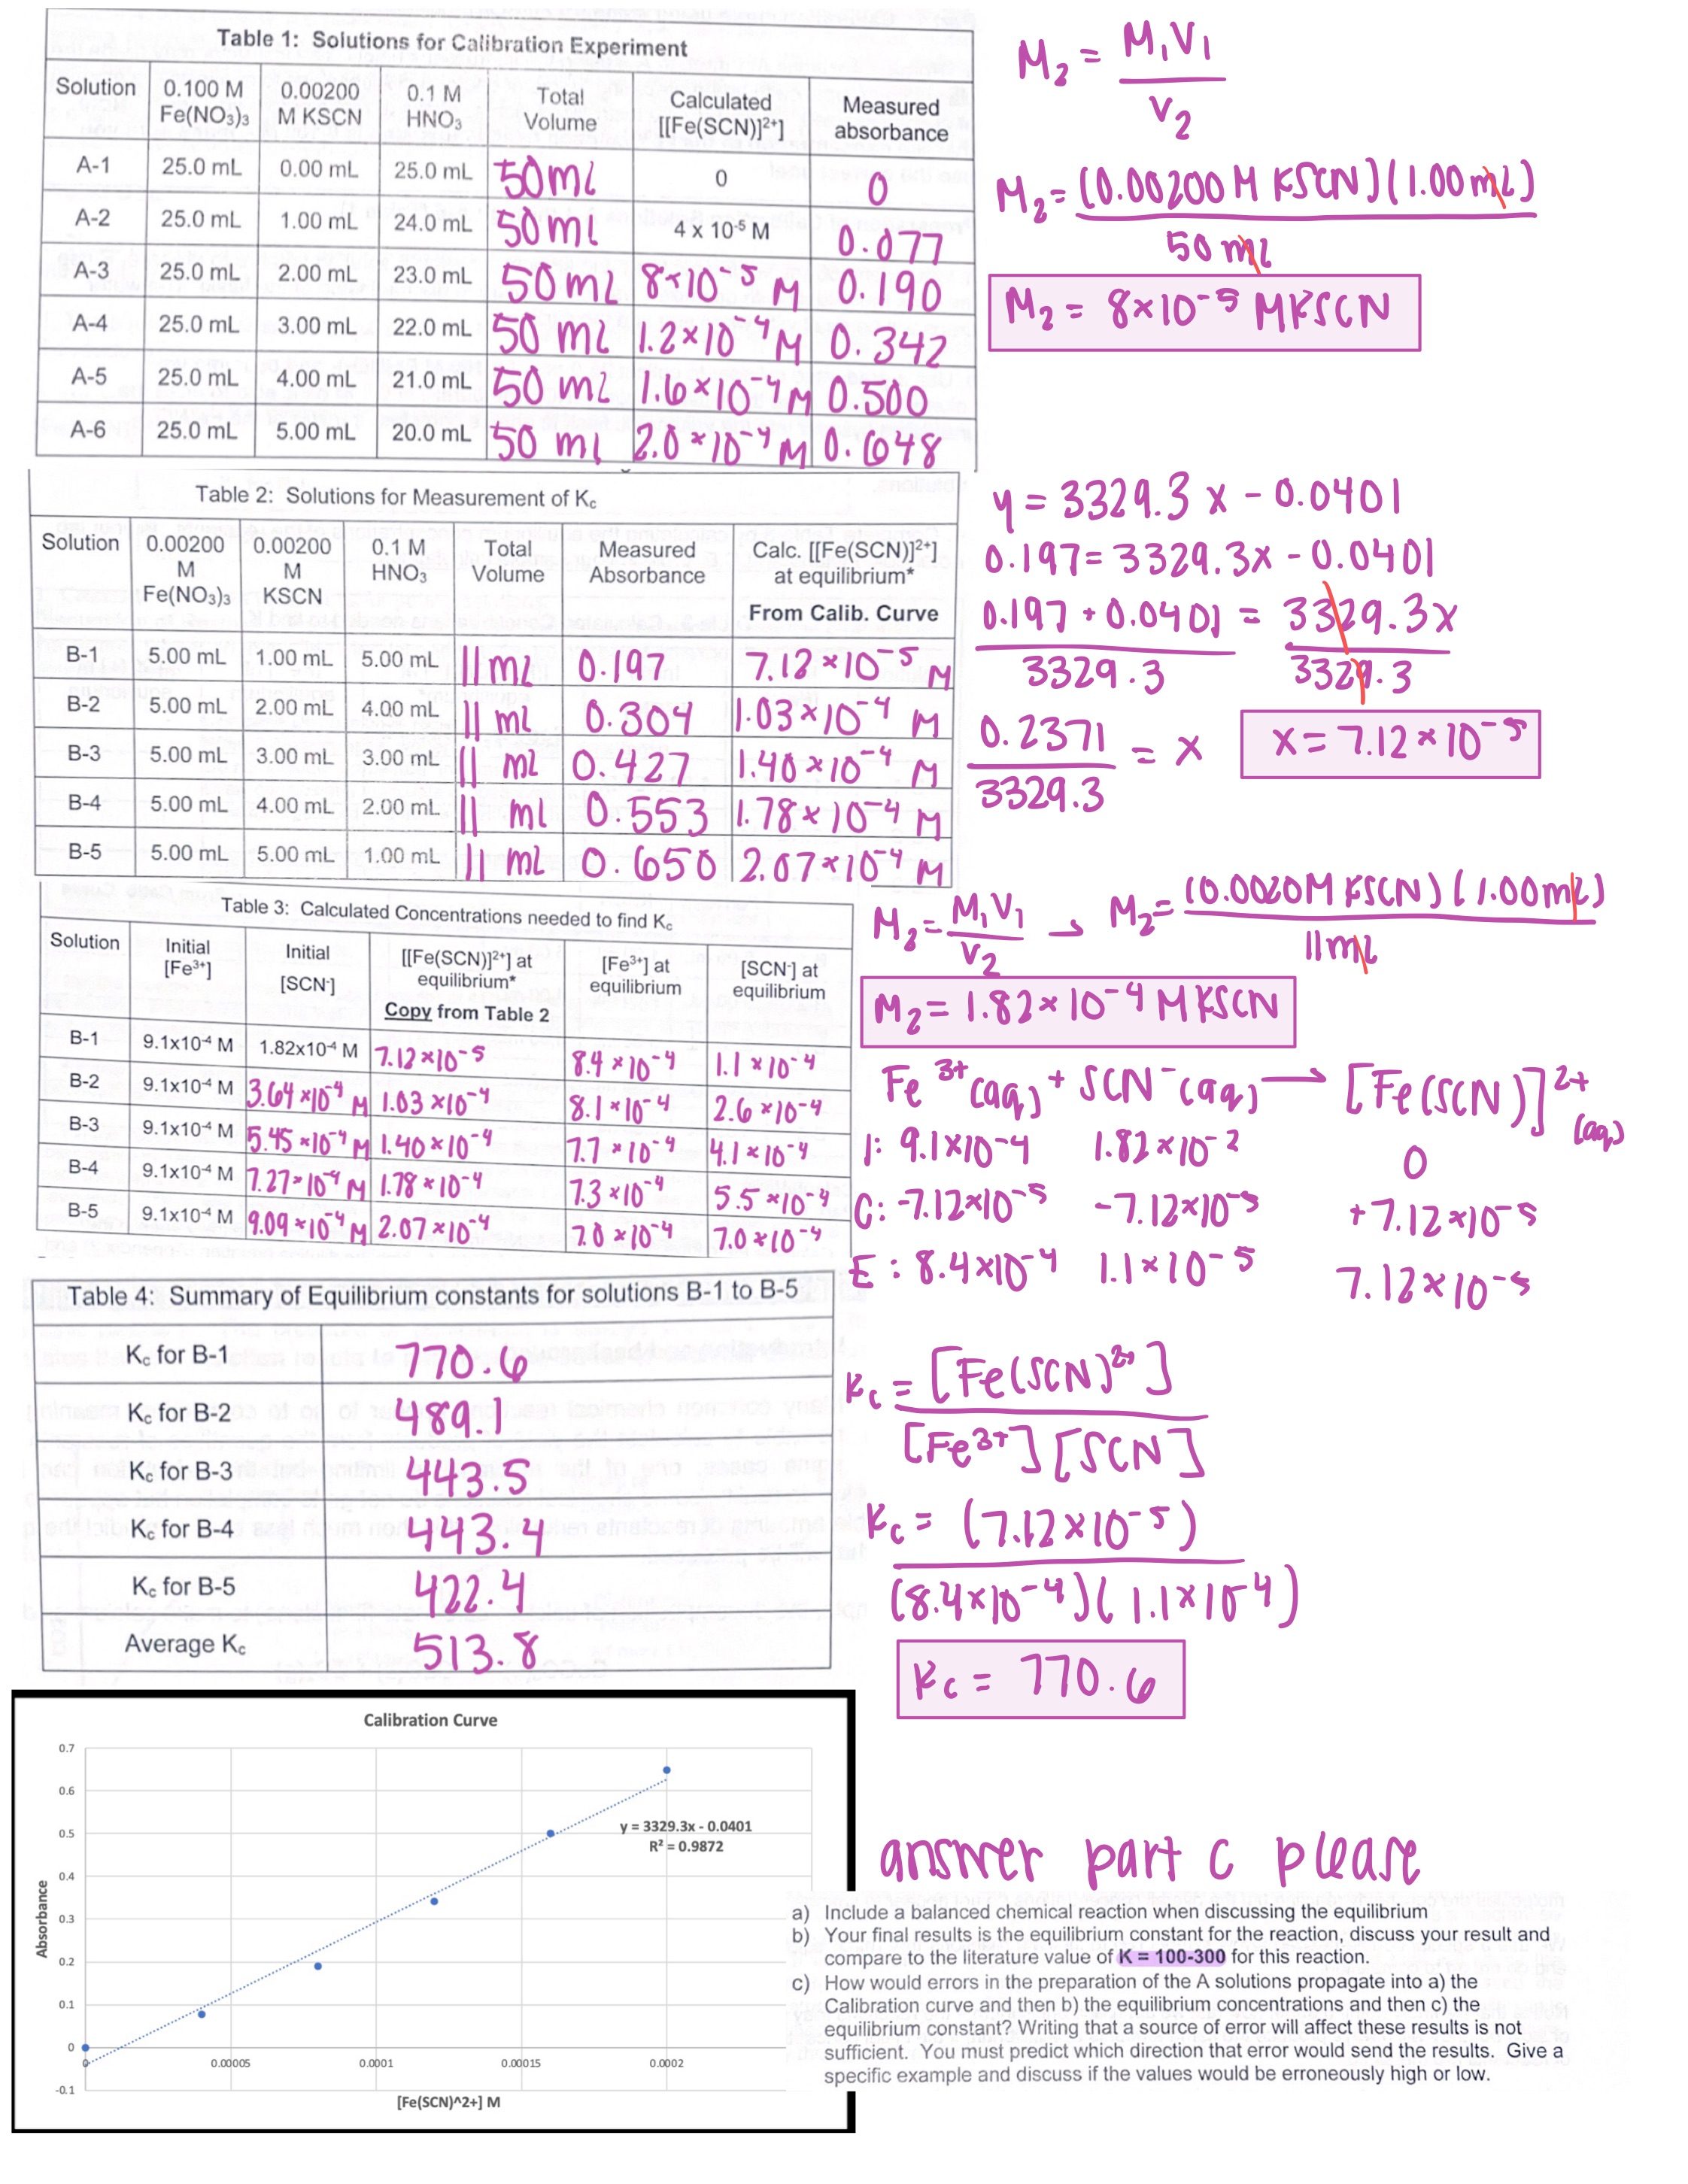 Table 1: Solutions for Calibration Experiment
Solution 0.100 M Fe(NO₃)₃ 0.00200 M KSCN 0.1 M HNO₃ Total Volume Calculated [[Fe(SCN)]²⁺] Measured absorbance
A-1 25.0 mL 0.00 mL 25.0 mL 50ml 0 0
A-2 25.0 mL 1.00 mL 24.0 mL 50ml 4 x 10⁻⁵ M 0.077
A-3 25.0 mL 2.00 mL 23.0 mL 50ml 8×10⁻⁵ M 0.190
A-4 25.0 mL 3.00 mL 22.0 mL 50 ml 1.2×10⁻⁴ M 0.342
A-5 25.0 mL 4.00 mL 21.0 mL 50 ml 1.6×10⁻⁴ M 0.500
A-6 25.0 mL 5.00 mL 20.0 mL 50 ml 2.0×10⁻⁴ M 0.648
M₂ = M₁V₁
V₂
M₂ = (0.00200 M KSCN)(1.00 mL)
50 ml
M₂ = 8×10⁻⁵ M KSCN
Table 2: Solutions for Measurement of K꜀
Solution 0.00200 M Fe(NO₃)₃ 0.00200 M KSCN 0.1 M HNO₃ Total Volume Measured Absorbance Calc. [[Fe(SCN)]²⁺] at equilibrium*
From Calib. Curve
B-1 5.00 mL 1.00 mL 5.00 mL 11ml 0.197 7.12×10⁻⁵ M
B-2 5.00 mL 2.00 mL 4.00 mL 11 ml 0.304 1.03×10⁻⁴ M
B-3 5.00 mL 3.00 mL 3.00 mL 11 ml 0.427 1.40×10⁻⁴ M
B-4 5.00 mL 4.00 mL 2.00 mL 11 ml 0.553 1.78×10⁻⁴ M
B-5 5.00 mL 5.00 mL 1.00 mL 11 ml 0.650 2.07×10⁻⁴ M
y = 3329.3 x - 0.0401
0.197 = 3329.3x - 0.0401
0.197 + 0.0401 = 3329.3x
3329.3 3329.3
0.2371 = x
3329.3
x = 7.12×10⁻⁵
Table 3: Calculated Concentrations needed to find K꜀
Solution Initial [Fe³⁺] Initial [SCN⁻] [[Fe(SCN)]²⁺] at equilibrium* Copy from Table 2 [Fe³⁺] at equilibrium [SCN⁻] at equilibrium
B-1 9.1x10⁻⁴ M 1.82x10⁻⁴ M 7.12×10⁻⁵ 8.4×10⁻⁴ 1.1×10⁻⁴
B-2 9.1x10⁻⁴ M 3.64×10⁻⁴ M 1.03×10⁻⁴ 8.1×10⁻⁴ 2.6×10⁻⁴
B-3 9.1x10⁻⁴ M 5.45×10⁻⁴ M 1.40×10⁻⁴ 7.7×10⁻⁴ 4.1×10⁻⁴
B-4 9.1x10⁻⁴ M 7.27×10⁻⁴ M 1.78×10⁻⁴ 7.3×10⁻⁴ 5.5×10⁻⁴
B-5 9.1x10⁻⁴ M 9.09×10⁻⁴ M 2.07×10⁻⁴ 7.0×10⁻⁴ 7.0×10⁻⁴
M₂ = M₁V₁ → M₂ = (0.0020M KSCN)(1.00mL)
V₂ 11ml
M₂ = 1.82×10⁻⁴ M KSCN
Fe³⁺(aq) + SCN⁻(aq) → [Fe(SCN)]²⁺(aq)
I: 9.1×10⁻⁴ 1.82×10⁻² 0
C: -7.12×10⁻⁵ -7.12×10⁻⁵ +7.12×10⁻⁵
E: 8.4×10⁻⁴ 1.1×10⁻⁵ 7.12×10⁻⁵
Table 4: Summary of Equilibrium constants for solutions B-1 to B-5
K꜀ for B-1 770.6
K꜀ for B-2 489.1
K꜀ for B-3 443.5
K꜀ for B-4 443.4
K꜀ for B-5 422.4
Average K꜀ 513.8
Kc = [Fe(SCN)²⁺]
[Fe³⁺][SCN]
Kc = (7.12×10⁻⁵)
(8.4×10⁻⁴)(1.1×10⁻⁴)
Kc = 770.6
Calibration Curve
0.7
0.6
0.5
0.4
0.3
0.2
0.1
0
-0.1
Absorbance
y = 3329.3x - 0.0401
R² = 0.9872
0 0.00005 0.0001 0.00015 0.0002
[Fe(SCN)^2+] M
answer part c please
a) Include a balanced chemical reaction when discussing the equilibrium
b) Your final results is the equilibrium constant for the reaction, discuss your result and
compare to the literature value of K = 100-300 for this reaction.
c) How would errors in the preparation of the A solutions propagate into a) the
Calibration curve and then b) the equilibrium concentrations and then c) the
equilibrium constant? Writing that a source of error will affect these results is not
sufficient. You must predict which direction that error would send the results. Give a
specific example and discuss if the values would be erroneously high or low.